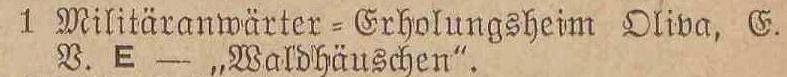 1 Militäranwärter = Erholungsheim Oliva, E.
V. E — „Waldhäuschen“.